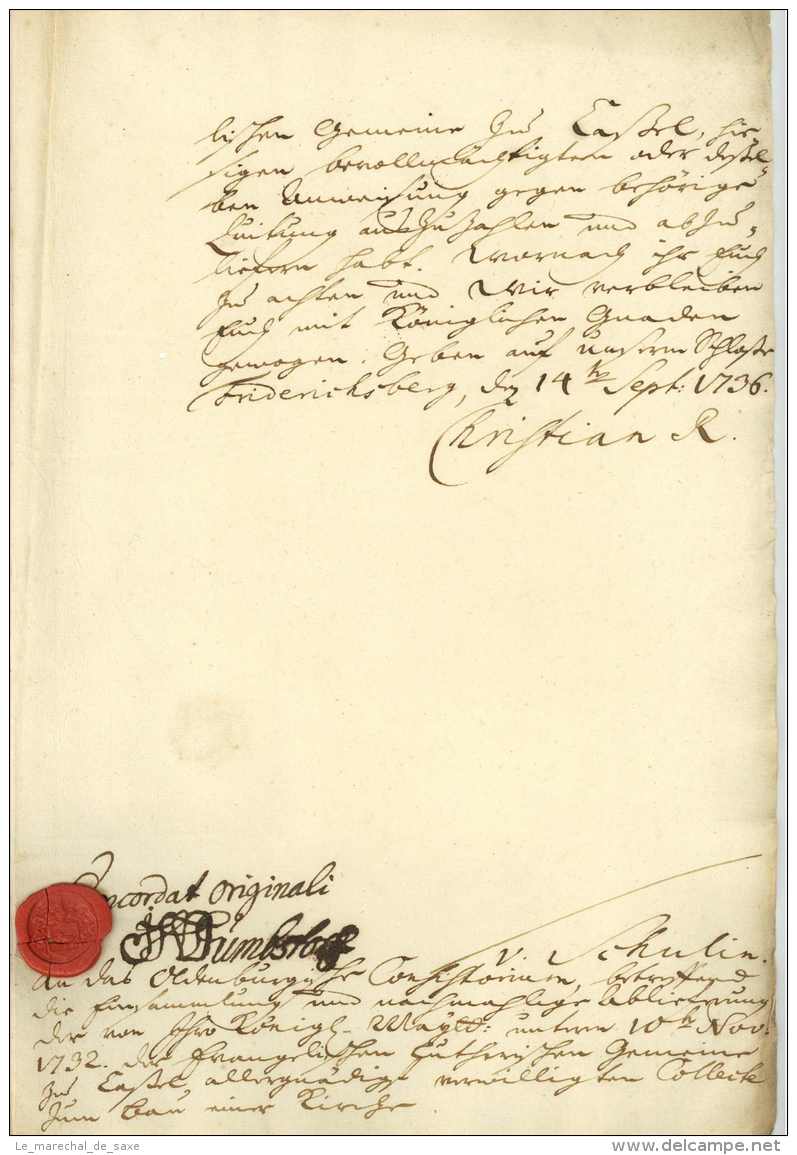 lischen Gemeine zu Cassel, hie-
sigen bevollmächtigten oder dessel-
ben Anweisung gegen behörige
Quitung auszuzahlen und abzu-
liefern habt. Wornach ihr Euch
zu achten und Wir verbleiben
Euch mit Königlichen Gnaden
gewogen. Geben auf unserm Schloße
Friderichsberg, den 14ten Sept: 1736.
Christian R.
Concordat originali
v. Schulin.
An das Oldenburgische Consistorium, betreffend
die Einsammlung und nachmahlige Ablieferung
der von Ihro Königl. Maytt: unterm 10ten Nov:
1732. der Evangelischen Lutherischen Gemeine
zu Cassel allergnädigst verwilligten Collecte
zum Bau einer Kirche.
Le_marechal_de_saxe
www.delcampe.net